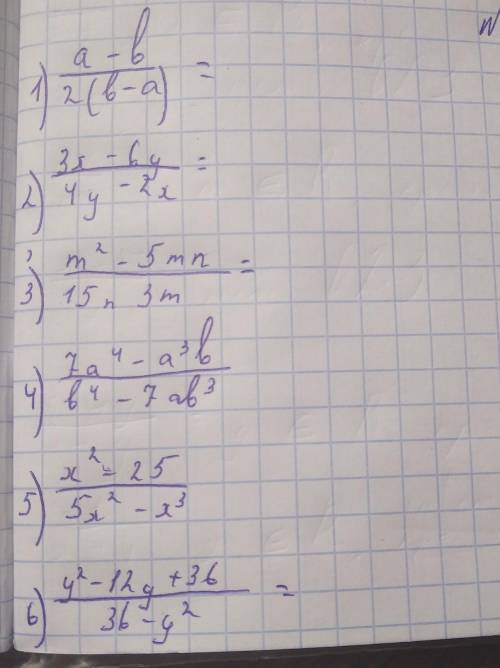 1) a - b / 2(b - a) =
2) 3x - 6y / 4y - 2x =
3) m² - 5mn / 15n 3m =
4) 7a⁴ - a³b / b⁴ - 7ab³
5) x² = 25 / 5x² - x³
6) y² - 12y + 36 / 36 - y² =